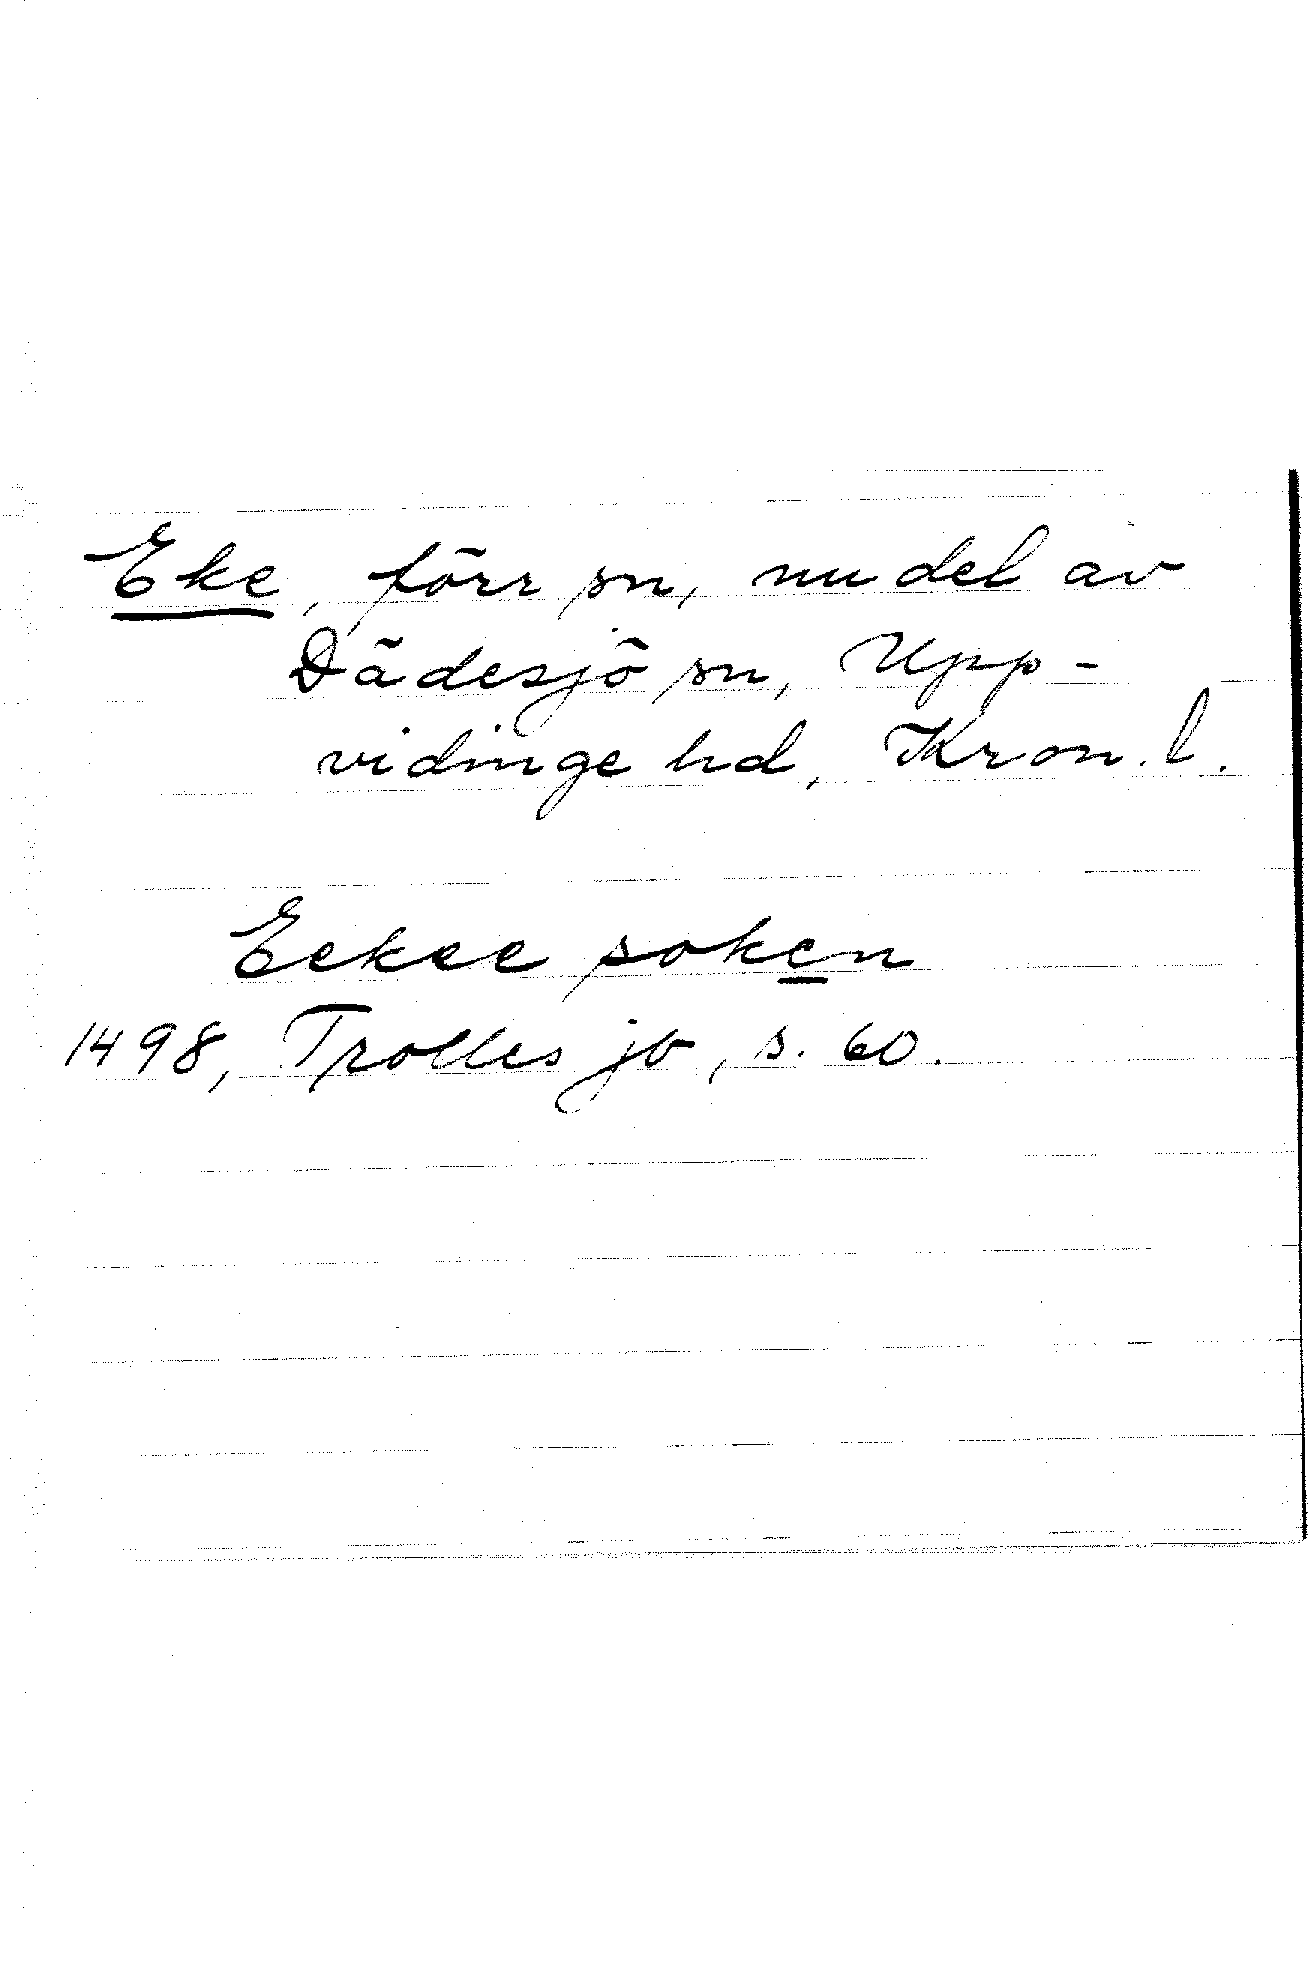 Eke, förr sn, nu del av
Dädesjö sn, Upp-
vidinge hd, Kron. l.
Eekee soken
1498, Trolles jb, s. 60.